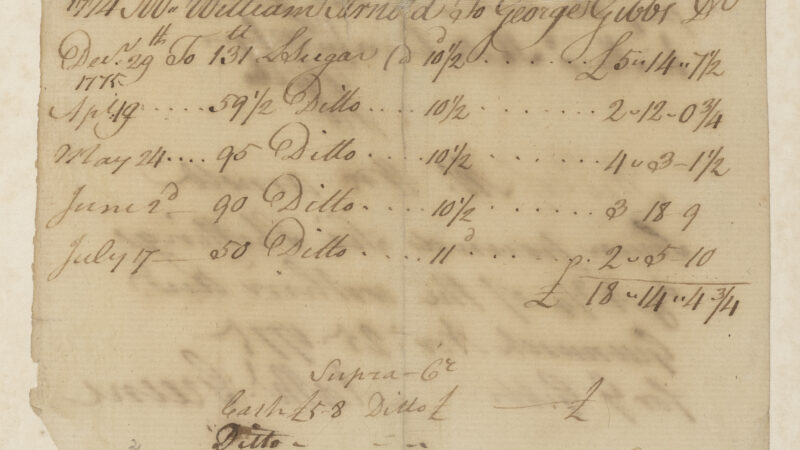 1774 Mr. William Arnold To George Gibbs Dr
Decr. 29th To 131 lb Sugar @ 10½d . . . . . . £5 ,, 14 ,, 7½
1775
Apl. 19 . . . . . 59½ Ditto . . . . 10½ . . . . . . . 2 ,, 12 - 0¾
May 24 . . . . 95 Ditto . . . . . 10½ . . . . . . 4 ,, 3 - 1½
June 2d — 90 Ditto . . . . . 10½ . . . . . . 3 18 9
July 17 — 50 Ditto . . . . . 11d 2 ,, 5 - 10
£ 18 ,, 14 ,, 4¾
Supra - Cr
Cash £5-8 Ditto £ — £
Ditto -